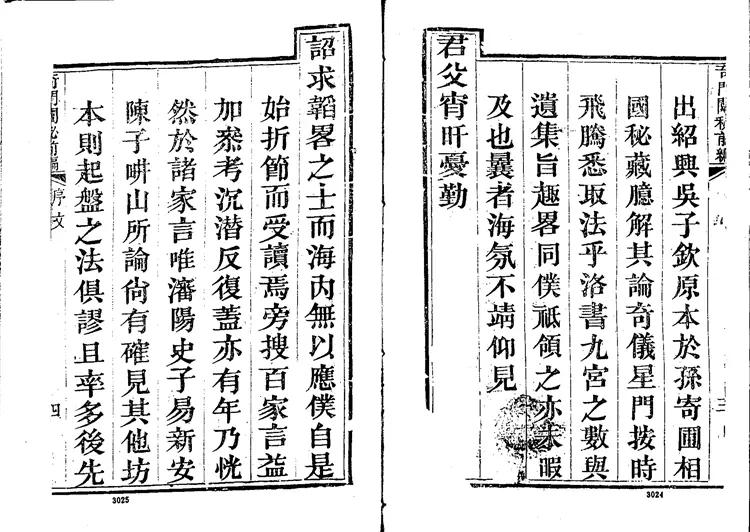 出紹興吳子欽原本於孫寄圃相
國秘藏臆解其論奇儀星門撥時
飛騰悉取法乎洛書九宮之數與
遺集旨趣畧同僕祗領之亦未暇
及也曩者海氛不靖仰見
君父宵旰憂勤
3024
詔求韜畧之士而海内無以應僕自是
始折節而受讀焉旁搜百家言益
加叅考沉潜反復蓋亦有年乃恍
然於諸家言唯瀋陽史子易新安
陳子畊山所論尙有確見其他坊
本則起盤之法俱謬且率多後先
序文
四
3025